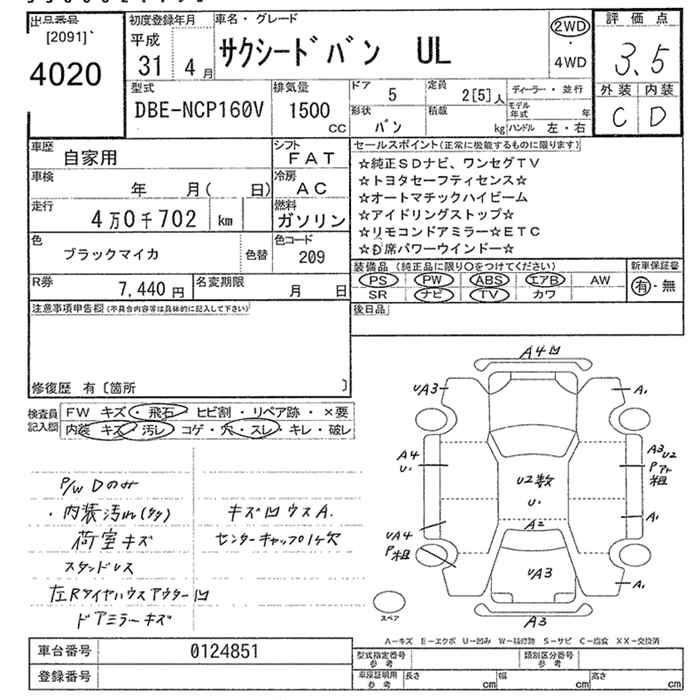 出品番号
[2091]
4020
初度登録年月
平成
31年 4月
車名・グレード
サクシードバン UL
2WD
・
4WD
評価点
3.5
外装 内装
C D
型式
DBE-NCP160V
排気量
1500
CC
ドア
5
定員
2[5]人
形状
バン
積載
kg
ディーラー・並行
モデル年式 年
ハンドル 左・右
車歴
自家用
シフト
FAT
車検
年 月( 日)
冷房
AC
走行
4万0千702 km
燃料
ガソリン
色
ブラックマイカ
色替
色コード
209
R券
7,440円
名変期限
月 日
セールスポイント(正常に機能するものに限ります)
☆純正SDナビ、ワンセグTV
☆トヨタセーフティセンス☆
☆オートマチックハイビーム
☆アイドリングストップ☆
☆リモコンドアミラー☆ETC
☆D席パワーウインドー☆
装備品(純正品に限り○をつけてください)
PS PW ABS エアB AW
SR ナビ TV カワ
新車保証書
有・無
後日品
注意事項申告欄(不具合内容等は具体的に記入して下さい)
修復歴 有〔箇所 〕
検査員記入欄
FW キズ・飛石・ヒビ割・リペア跡・×要
内装 キズ・汚レ・コゲ・穴・スレ・キレ・破レ
P/W Dのみ
・内装汚れ
荷室キズ
スタンドレス
左Rタイヤハウスアウター凹
ドアミラーキズ
キズ凹ウスA.
センターキャップ1ケ欠
A4凹
UA3
A1
A4
U'
A3 U2
Pアト
粗
U2数
U'
A1
A2
UA4
P粗
UA3
A1
A3
スペア
A-キズ E-エクボ U-凹み W-補修跡 S-サビ C-腐食 XX-交換済
車台番号
0124851
登録番号
型式指定番号
参考
類別区分番号
参考
車庫証明用
参考
長さ cm
幅 cm
高さ cm